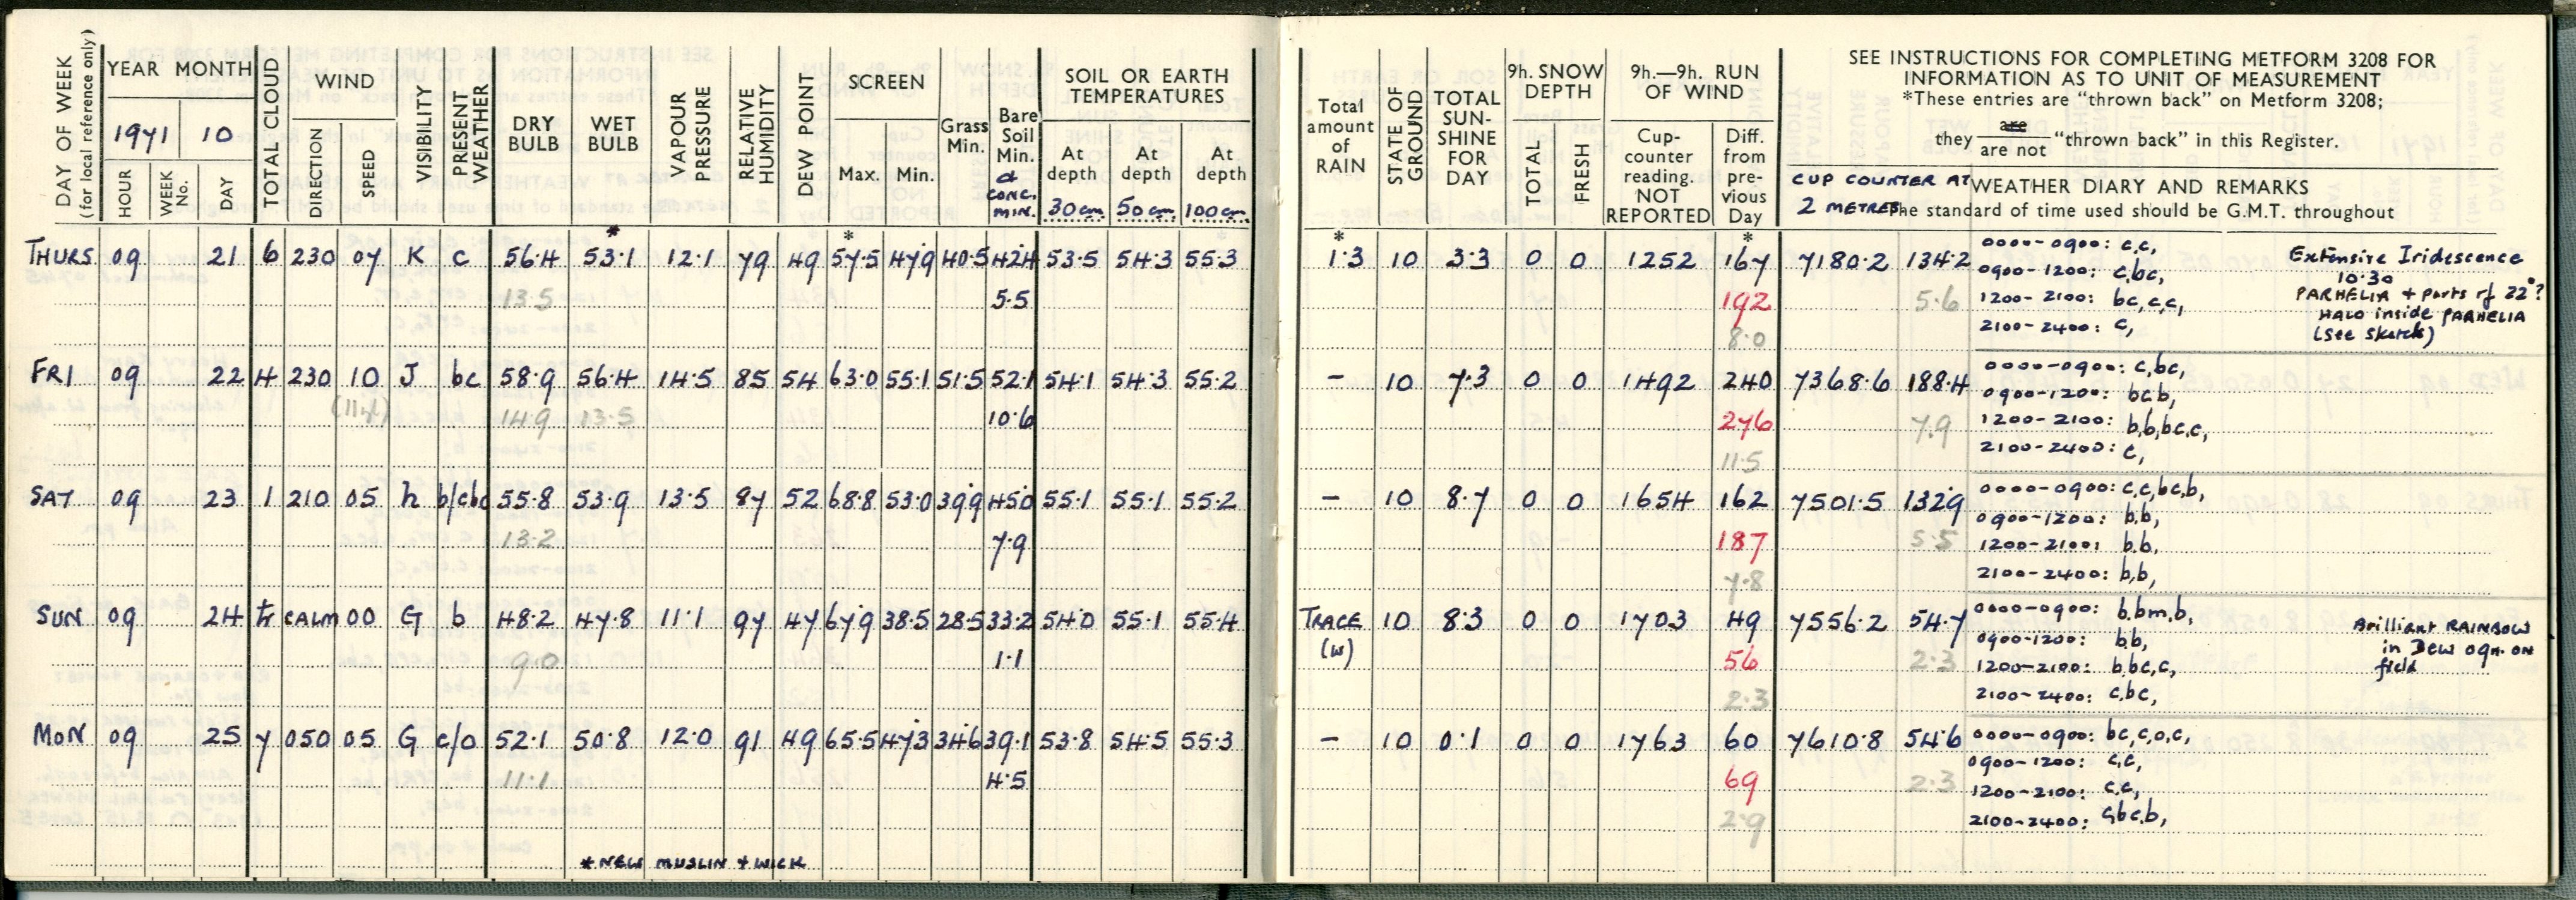 DAY OF WEEK
(for local reference only)
YEAR MONTH
1971 10
HOUR
WEEK No.
DAY
TOTAL CLOUD
WIND
DIRECTION
SPEED
VISIBILITY
PRESENT WEATHER
DRY BULB
WET BULB
VAPOUR PRESSURE
RELATIVE HUMIDITY
DEW POINT
SCREEN
Max. Min.
Grass Min.
Bare Soil Min.
CONC. MIN.
SOIL OR EARTH TEMPERATURES
At depth 30 cm
At depth 50 cm
At depth 100 cm
Total amount of RAIN
STATE OF GROUND
TOTAL SUN-SHINE FOR DAY
9h. SNOW DEPTH
TOTAL
FRESH
9h.—9h. RUN OF WIND
Cup-counter reading. NOT REPORTED
Diff. from pre-vious Day
SEE INSTRUCTIONS FOR COMPLETING METFORM 3208 FOR
INFORMATION AS TO UNIT OF MEASUREMENT
*These entries are "thrown back" on Metform 3208;
they are / are not "thrown back" in this Register.
CUP COUNTER AT
2 METRES
WEATHER DIARY AND REMARKS
The standard of time used should be G.M.T. throughout
THURS 09 21 6 230 07 K c 56.4 53.1 12.1 79 49 57.5 47.9 40.5 42.4 53.5 54.3 55.3
13.5 5.5
* 1.3 10 3.3 0 0 1252 167 7180.2 134.2
192 5.6
8.0
0000-0900: c,c,
0900-1200: c,bc,
1200-2100: bc,c,c,
2100-2400: c,
Extensive Iridescence
10.30
PARHELIA + parts of 22°?
HALO inside PARHELIA
(See sketch)
FRI 09 22 4 230 10 J bc 58.9 56.4 14.5 85 54 63.0 55.1 51.5 52.1 54.1 54.3 55.2
14.9 13.5 10.6
- 10 7.3 0 0 1492 240 7368.6 188.4
276 7.9
11.5
0000-0900: c,bc,
0900-1200: bc,b,
1200-2100: b,b,bc,c,
2100-2400: c,
SAT 09 23 1 210 05 h b/cbc 55.8 53.9 13.5 87 52 68.8 53.0 39.9 45.0 55.1 55.1 55.2
13.2 7.9
- 10 8.7 0 0 1654 162 7501.5 132.9
187 5.5
7.8
0000-0900: c,c,bc,b,
0900-1200: b,b,
1200-2100: b,b,
2100-2400: b,b,
SUN 09 24 tr CALM 00 G b 48.2 47.8 11.1 97 47 67.9 38.5 28.5 33.2 54.0 55.1 55.4
9.0 1.1
TRACE 10 8.3 0 0 1703 49 7556.2 54.7
(w) 56 2.3
2.3
0000-0900: b,bm,b,
0900-1200: b,b,
1200-2100: b,bc,c,
2100-2400: c,bc,
Brilliant RAINBOW
in Dew 09h. ON
field
MON 09 25 7 050 05 G c/o 52.1 50.8 12.0 91 49 65.5 47.3 34.6 39.1 53.8 54.5 55.3
11.1 4.5
- 10 0.1 0 0 1763 60 7610.8 54.6
69 2.3
2.9
0000-0900: bc,c,o,c,
0900-1200: c,c,
1200-2100: c,c,
2100-2400: c,bc,b,
*NEW MUSLIN + WICK